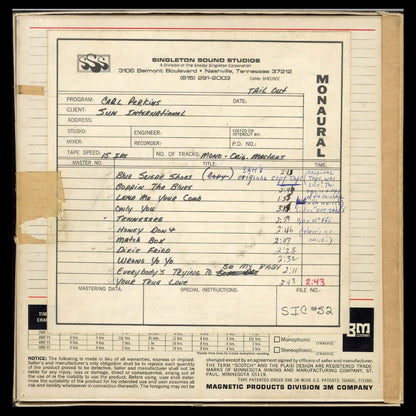 SSS
SINGLETON SOUND STUDIOS
A Division of The Shelby Singleton Corporation
3106 Belmont Boulevard • Nashville, Tennessee 37212
(615) 291-2003 Cable: SHELREC
TAIL OUT
MONAURAL
PROGRAM: CARL PERKINS DATE:
CLIENT: SUN INTERNATIONAL
ADDRESS:
STUDIO: ENGINEER: EDITED OR INTERCUT BY:
MIXER: RECORDER: P.O. NO.:
TAPE SPEED: 15 IPS NO. OF TRACKS: MONO - ORIG. MASTERS
MASTER NO. TITLE: TIME:
BLUE SUEDE SHOES (COPY) SAM'S ORIGINAL COPY TAPE 2:13
BOPPIN THE BLUES 2:49
LEND ME YOUR COMB 1:55
ONLY YOU
TENNESSEE 2:59
HONEY DON'T 2:46
MATCH BOX 2:07
DIXIE FRIED 2:23
WRONG YO YO 2:32
EVERYBODY'S TRYING TO BE MY BABY 2:11
YOUR TRUE LOVE 2:43 2:43
MASTERING DATA: SPECIAL INSTRUCTIONS: FILE NO.:
SIC #52
Monophonic
Stereophonic
3M COMPANY
NOTICE: In place of all warranties, express or implied:
Seller's and manufacturer's only obligation shall be to replace such quantity of the product proved to be defective. Seller and manufacturer shall not be liable for any injury, loss, or damage, direct or consequential, arising out of the use of or the inability to use the product. Before using, user shall determine the suitability of the product for his intended use and user assumes all risk and liability whatsoever in connection therewith.
THE TERM "SCOTCH" AND THE PLAID DESIGN ARE REGISTERED TRADEMARKS OF MINNESOTA MINING AND MANUFACTURING COMPANY, ST. PAUL, MINNESOTA 55119
MAGNETIC PRODUCTS DIVISION 3M COMPANY